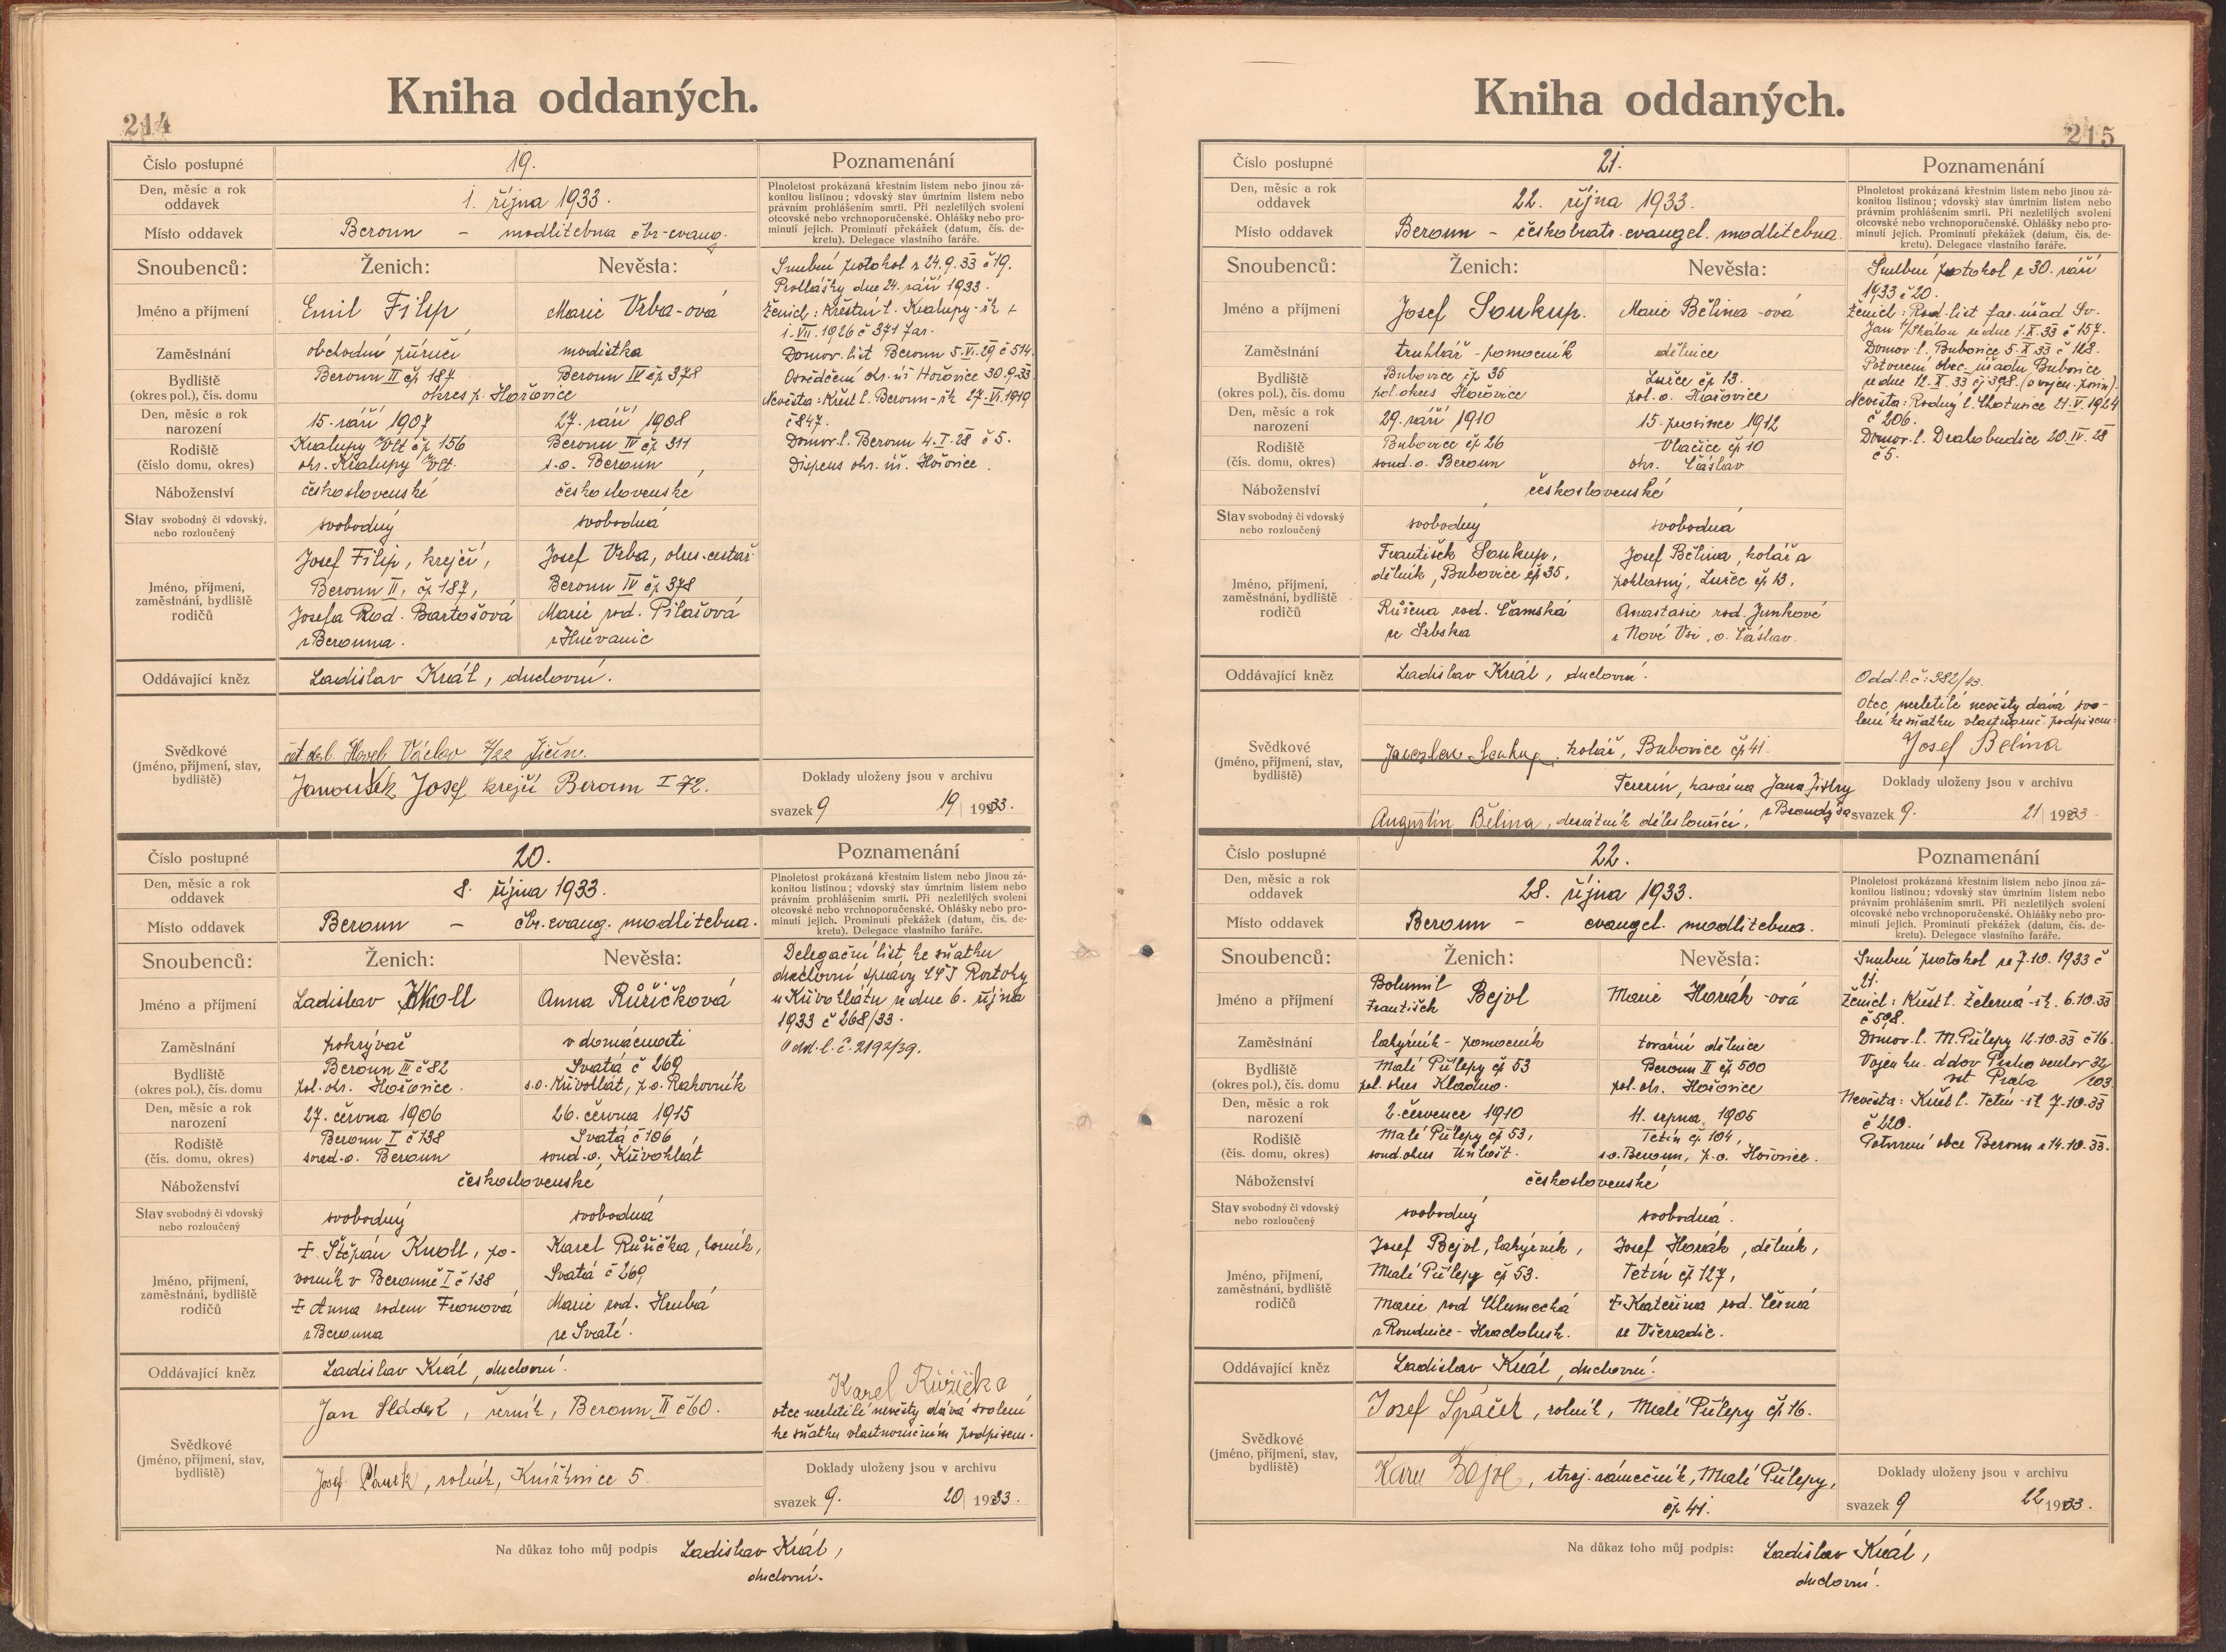 Kniha oddaných.
214
Číslo postupné 19. Poznamenání
Den, měsíc a rok oddavek 1. října 1933.
Plnoletost prokázaná křestním listem nebo jinou zá-
konitou listinou; vdovský stav úmrtním listem nebo
právním prohlášením smrti. Při nezletilých svolení
otcovské nebo vrchnoporučenské. Ohlášky nebo pro-
minutí jejich. Prominutí překážek (datum, čís. de-
kretu). Delegace vlastního faráře.
Místo oddavek Beroun – modlitebna čbr-evang.
Snoubenců: Ženich: Nevěsta:
Jméno a příjmení Emil Filip Marie Vrba-ová
Zaměstnání obchodní příručí modistka
Bydliště (okres pol.), čís. domu Beroun II čp 187 Beroun IV čp 378
okres p. Hořovice
Den, měsíc a rok narození 15. září 1907 27. září 1908
Rodiště (číslo domu, okres) Kralupy Vlt čp 156 Beroun IV čp 311
okr. Kralupy Vlt. s.o. Beroun
Náboženství československé československé
Stav svobodný či vdovský, nebo rozloučený svobodný svobodná
Jméno, příjmení, zaměstnání, bydliště rodičů
Josef Filip, krejčí, Josef Vrba, okres. cestář
Beroun II, čp. 187, Beroun IV čp 378
Josefa Rod. Bartošová Marie rod. Pilařová
z Berouna. z Hněvanic
Oddávající kněz Ladislav Král, duchovní.
Svědkové (jméno, příjmení, stav, bydliště)
Havel Václav Jičín.
Janoušek Josef krejčí Beroun I 72.
Snubní protokol z 24.9.33 č 19.
Prohlášky dne 24. září 1933.
Ženich: Křestní l. Kralupy
1. VII. 1926 č 371 far.
Domov. list Beroun 5. VI. 29 č 514.
Osvědčení okr. úř Hořovice 30.9.33.
Nevěsta: Křest l. Beroun 27. VI. 1919
č 847.
Domov. l. Beroun 4. I. 28 č 5.
Dispens okr. úř. Hořovice.
Doklady uloženy jsou v archivu
svazek 9 19 1933.
Číslo postupné 20. Poznamenání
Den, měsíc a rok oddavek 8. října 1933.
Plnoletost prokázaná křestním listem nebo jinou zá-
konitou listinou; vdovský stav úmrtním listem nebo
právním prohlášením smrti. Při nezletilých svolení
otcovské nebo vrchnoporučenské. Ohlášky nebo pro-
minutí jejich. Prominutí překážek (datum, čís. de-
kretu). Delegace vlastního faráře.
Místo oddavek Beroun – čbr. evang. modlitebna.
Snoubenců: Ženich: Nevěsta:
Jméno a příjmení Ladislav Knoll Anna Růžičková
Zaměstnání pokrývač v domácnosti
Bydliště (okres pol.), čís. domu Beroun III č 82 Svatá č 269
pol. okr. Hořovice. s.o. Křivoklát, p.o. Rakovník
Den, měsíc a rok narození 27. června 1906 26. června 1915
Rodiště (čís. domu, okres) Beroun I č 138 Svatá č 106
soud. o. Beroun soud. o. Křivoklát
Náboženství československé
Stav svobodný či vdovský nebo rozloučený svobodný svobodná
Jméno, příjmení, zaměstnání, bydliště rodičů
† Štěpán Knoll, po- Karel Růžička, horník,
vozník v Berouně I č 138 Svatá č 269
† Anna rodem Fronová Marie rod. Hrubá
z Berouna ze Svaté.
Oddávající kněz Ladislav Král, duchovní.
Svědkové (jméno, příjmení, stav, bydliště)
Jan Sládek, řezník, Beroun II č 60.
Josef, rolník, Kněžkovice 5.
Delegační list ke sňatku
duchovní správy CČS Roztoky
u Křivoklátu ze dne 6. října
1933 č 268/33.
Odd. l. č. 2192/39.
Karel Růžička
otec nezletilé nevěsty dává svolení
ke sňatku vlastnoručním podpisem.
Doklady uloženy jsou v archivu
svazek 9. 20 1933.
Na důkaz toho můj podpis Ladislav Král,
duchovní.
Kniha oddaných.
215
Číslo postupné 21. Poznamenání
Den, měsíc a rok oddavek 22. října 1933.
Plnoletost prokázaná křestním listem nebo jinou zá-
konitou listinou; vdovský stav úmrtním listem nebo
právním prohlášením smrti. Při nezletilých svolení
otcovské nebo vrchnoporučenské. Ohlášky nebo pro-
minutí jejich. Prominutí překážek (datum, čís. de-
kretu). Delegace vlastního faráře.
Místo oddavek Beroun – českobratr. evangel. modlitebna.
Snoubenců: Ženich: Nevěsta:
Jméno a příjmení Josef Soukup. Marie Bělina-ová
Zaměstnání truhlář-pomocník dělnice
Bydliště (okres pol.), čís. domu Bubovice čp 35 Lužce čp 13.
pol. okres Hořovice pol. o. Hořovice
Den, měsíc a rok narození 29. září 1910 15. prosince 1912
Rodiště (čís. domu, okres) Bubovice čp 26 Vlačice čp 10
soud. o. Beroun okr. Čáslav
Náboženství československé
Stav svobodný či vdovský nebo rozloučený svobodný svobodná
Jméno, příjmení, zaměstnání, bydliště rodičů
František Soukup, Josef Bělina, kolář a
dělník, Bubovice čp 35, pohlasný, Lužec čp 13,
Růžena rod. Čamská Anastasie rod. Junkové
ze Srbska z Nové Vsi, o. Čáslav.
Oddávající kněz Ladislav Král, duchovní.
Svědkové (jméno, příjmení, stav, bydliště)
Jaroslav Soukup, kolář, Bubovice čp 41
Terezín, kasárna Jana Žižky
Augustin Bělina, desátník
Snubní protokol z 30. září
1933 č 20.
Ženich: Rod. list far. úřad Sv.
Jan p/Skálou ze dne 1. X. 33 č 157.
Domov. l. Bubovice 5. X 33 č 128.
Potvrzení obec. úřadu Bubovice
ze dne 12. X. 33 čj 398. (o vojen. povin).
Nevěsta: Rodný l. Chotusice 21. V. 1924
č 206.
Domov. l. Drahobudice 20 IV. 28
č 5.
Odd. l. č: 382/43.
Otec nezletilé nevěsty dává svo-
lení ke sňatku vlastnoruč. podpisem:
Josef Belina
Doklady uloženy jsou v archivu
svazek 9. 21 1933
Číslo postupné 22. Poznamenání
Den, měsíc a rok oddavek 28. října 1933.
Plnoletost prokázaná křestním listem nebo jinou zá-
konitou listinou; vdovský stav úmrtním listem nebo
právním prohlášením smrti. Při nezletilých svolení
otcovské nebo vrchnoporučenské. Ohlášky nebo pro-
minutí jejich. Prominutí překážek (datum, čís. de-
kretu). Delegace vlastního faráře.
Místo oddavek Beroun – evangel. modlitebna.
Snoubenců: Ženich: Nevěsta:
Jméno a příjmení Bohumil František Bejvl Marie Horák-ová
Zaměstnání lahýrník-pomocník tovární dělnice
Bydliště (okres pol.), čís. domu Malé Přílepy čp 53 Beroun II čp 500
pol. okres Kladno. pol. ok. Hořovice
Den, měsíc a rok narození 2. července 1910 11. srpna 1905
Rodiště (čís. domu, okres) Malé Přílepy čp 53, Tetín čp. 104,
soud. okres Unhošť. s.o. Beroun, p.o. Hořovice.
Náboženství československé
Stav svobodný či vdovský nebo rozloučený svobodný svobodná.
Jméno, příjmení, zaměstnání, bydliště rodičů
Josef Bejvl, lahýrník, Josef Horák, dělník,
Malé Přílepy čp 53. Tetín čp 127,
Marie rod Chlumecká † Kateřina rod. Černá
z Roudnice-Hracholusk. ze Všeradic.
Oddávající kněz Ladislav Král, duchovní.
Svědkové (jméno, příjmení, stav, bydliště)
Josef Špaček, rolník, Malé Přílepy čp 16.
Karel Bejvl, stroj. zámečník, Malé Přílepy,
čp 41.
Snubní protokol ze 7.10. 1933 č
21.
Ženich: Křest l. Železná 6.10.33
č 598.
Domov. l. M. Přílepy 12.10.33 č 16.
Praha
Nevěsta: Křest l. Tetín 7.10.33
č 220.
Potvrzení obce Beroun z 14.10.33.
Doklady uloženy jsou v archivu
svazek 9 22 1933.
Na důkaz toho můj podpis: Ladislav Král,
duchovní.